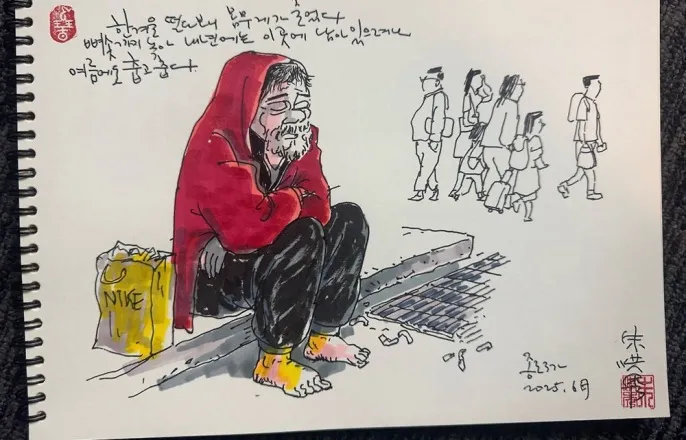 한겨울 떨더보니 몸무게가 줄었다
뼈속까지 녹아 내년에는 이곳에 남아있으려나
여름에도 춥고 춥다.
NIKE
종로3가
2025. 6月